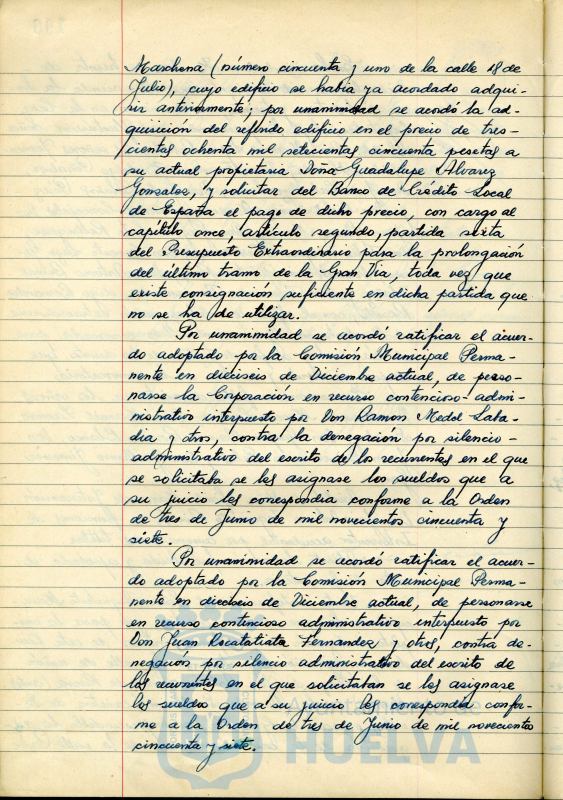 Marchena (número cincuenta y uno de la calle 18 de
Julio), cuyo edificio se había ya acordado adqui-
rir anteriormente; por unanimidad se acordó la ad-
quisición del referido edificio en el precio de tres-
cientas ochenta mil setecientas cincuenta pesetas a
su actual propietaria Doña Guadalupe Alvarez
Gonzalez, y solicitar del Banco de Crédito Local
de España el pago de dicho precio, con cargo al
capítulo once, artículo segundo, partida sexta
del Presupuesto Extraordinario para la prolongación
del último tramo de la Gran Via, toda vez que
existe consignación suficiente en dicha partida que
no se ha de utilizar.
Por unanimidad se acordó ratificar el acuer-
do adoptado por la Comisión Municipal Perma-
nente en dieciseis de Diciembre actual, de perso-
narse la Corporación en recurso contencioso-admi-
nistrativo interpuesto por Don Ramon Medel
y otros, contra la denegación por silencio-
administrativo del escrito de los recurrentes en el que
se solicitaba se les asignase los sueldos que a
su juicio les correspondia conforme a la Orden
de tres de Junio de mil novecientos cincuenta y
siete.
Por unanimidad se acordó ratificar el acuer-
do adoptado por la Comisión Municipal Perma-
nente en dieciseis de Diciembre actual, de personarse
en recurso contencioso administrativo interpuesto por
Don Juan Fernandez y otros, contra de-
negación por silencio administrativo del escrito de
los recurrentes en el que solicitaban se les asignase
los sueldos que a su juicio les correspondia confor-
me a la Orden de tres de Junio de mil novecientos
cincuenta y siete.
HUELVA